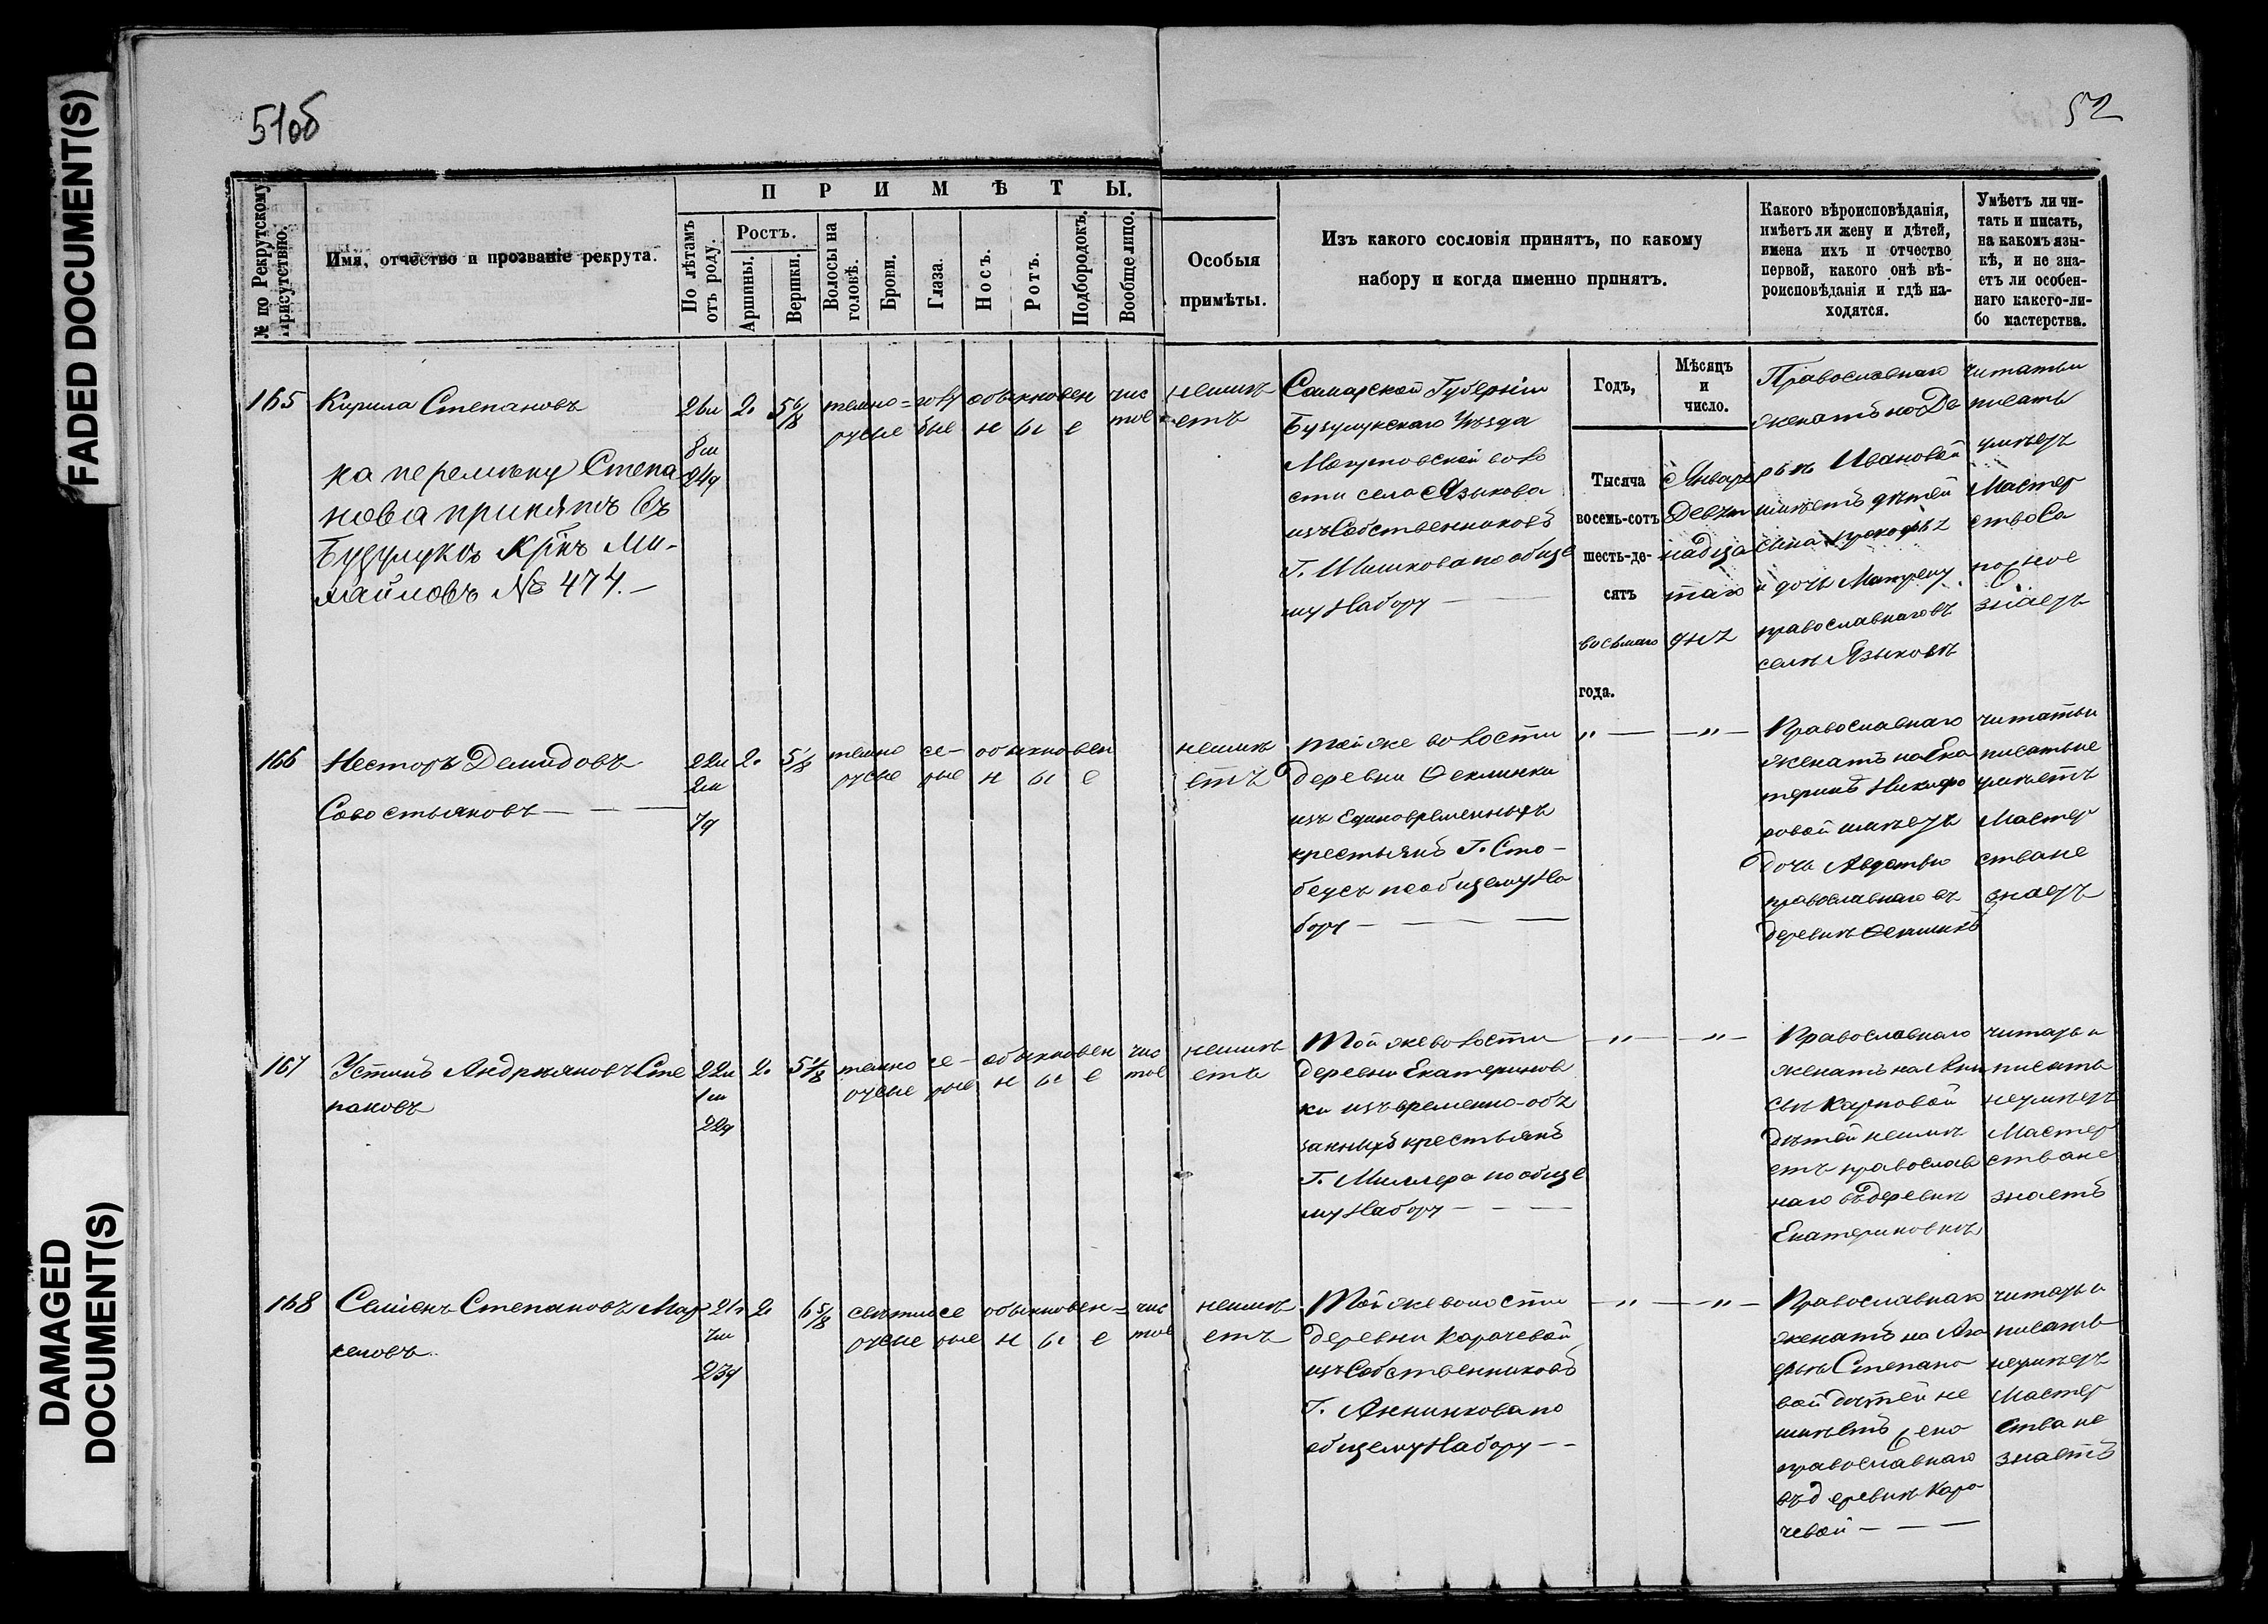 FADED DOCUMENT(S)
DAMAGED
DOCUMENT(S)
51об
52
№ по Рекрутскому
Присутствію.
Имя, отчество и прозваніе рекрута.
ПРИМѢТЫ.
По лѣтамъ
отъ роду.
Ростъ.
Аршины.
Вершки.
Волосы на
головѣ.
Брови.
Глаза.
Носъ.
Ротъ.
Подбородокъ.
Вообще лицо.
Особыя
примѣты.
Изъ какого сословія принятъ, по какому
набору и когда именно принятъ.
Какого вѣроисповѣданія,
имѣетъ ли жену и дѣтей,
имена ихъ и отчество
первой, какого онѣ вѣ-
роисповѣданія и гдѣ на-
ходятся.
Умѣетъ ли чи-
тать и писать,
на какомъ язы-
кѣ, и не зна-
етъ ли особен-
наго какого-ли-
бо мастерства.
165
Кирила Степановъ
на перемену Степа
нова принятъ въ
Бузулукѣ
№ 474.-
26л
8м
24д
2.
5 6/8
темно=
русые
голу
бые
обыкновен
н ы е
чис
тое
неимѣ
етъ
Самарской Губерніи
Бузулукскаго Уѣзда
воло
сти села Языкова
изъ Собственниковъ
Г. Шишкова по обще
му Набору
Годъ,
Тысяча
восемь-сотъ
шесть-де-
сятъ
восьмаго
года.
Мѣсяцъ
и
число.
Январь
Девят
надца
таго
дня
Православнаго
женатъ на Да
рьѣ Ивановой
имѣетъ дѣтей
сына
и дочь Матрену
православнаго въ
селѣ Языковѣ
читать и
писать
умѣетъ
Мастер
ство Са
пожное
знаетъ
166
Несторъ Демидовъ
Савостьяновъ
22л
2м
7д
2.
5 1/8
темно
русые
се-
рые
обыкновен
н ы е
неимѣ
етъ
той же волости
деревни Феклинки
изъ Единовременныхъ
крестьянъ Г. Сто-
беусъ по общему На
бору
" "
Православнаго
женатъ на Ека
теринѣ Никифо
ровой имѣетъ
дочь Авдотью
православнаго въ
деревнѣ Феклинкѣ
читать и
писать не
умѣетъ
Мастер
ства не
знаетъ
167
Устинъ Андрияновъ Сте
пановъ
22л
1м
22д
2.
5 1/8
темно
русые
се-
рые
обыкновен
н ы е
чис
тое
неимѣ
етъ
Той же волости
деревни Екатеринов
ки изъ временно-обя
занныхъ крестьянъ
Г. Миллера по обще
му Набору
" "
Православнаго
женатъ на
Карповой
дѣтей неимѣ
етъ православ
наго въ деревнѣ
Екатериновкѣ
читать и
писать
неумѣетъ
Мастер
ства не
знаетъ
168
Семенъ Степановъ Мар
келовъ
21л
7м
23д
2
6 5/8
свѣтло
русые
се
рые
обыкновен=
н ы е
чис
тое
неимѣ
етъ
Той же волости
деревни Карачевой
изъ Собственниковъ
Г. Анненкова по
общему Набору --
" "
Православнаго
женатъ на Ага
фьѣ Степано
вой дѣтей не
имѣетъ
православнаго
въ деревнѣ Кара
чевой
читать и
писать
неумѣетъ
Мастер
ства не
знаетъ